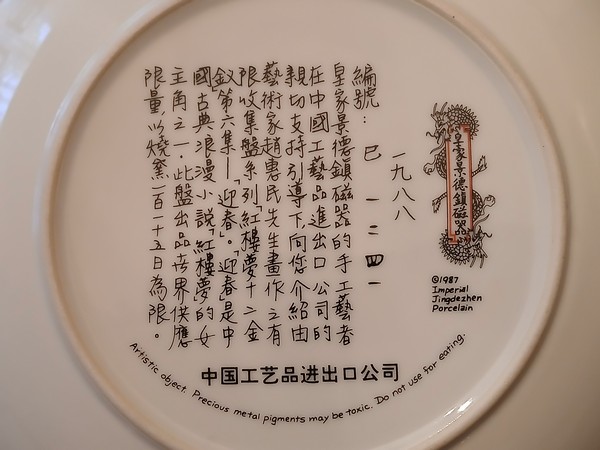 皇家景德鎮磁器
©1987
Imperial
Jingdezhen
Porcelain
一九八八
編號：巳 一二四一
皇家景德鎮磁器的手工藝者
在中國工藝品進出口公司的
親切支持引導下,向您介紹由
藝術家趙惠民先生畫作之有
限收集盤系列「紅樓夢十二金
釵」第六集—「迎春」。「迎春」是中
國古典浪漫小說「紅樓夢」的女
主角之一．此盤出品世界供應
限量,以燒窯一百一十五日為限。
中国工艺品进出口公司
Artistic object. Precious metal pigments may be toxic. Do not use for eating.